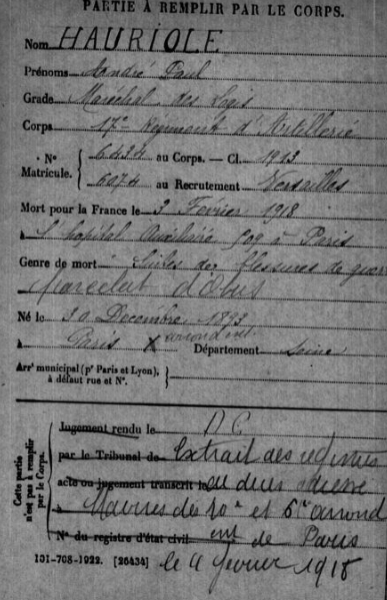 PARTIE À REMPLIR PAR LE CORPS.
Nom HAURIOLE
Prénoms André Paul
Grade Maréchal des Logis
Corps 17e Régiment d'Artillerie
N° Matricule. 6434 au Corps. — Cl. 1913
6074 au Recrutement Versailles
Mort pour la France le 3 Février 1918
à l'hopital Auxiliaire 509 à Paris
Genre de mort Suites de blessures de guerre
d'Obus
Né le 30 Decembre 1893
à Paris X arrondt Département Seine
Arrt municipal (pr Paris et Lyon), à défaut rue et N°.
Cette partie n'est pas à remplir par le Corps.
Jugement rendu le D C
par le Tribunal de Extrait des
acte ou jugement transcrit le
à Mairies des 10e et 6e arrond
N° du registre d'état civil de Paris
101-708-1922. [26434] le 4 février 1918